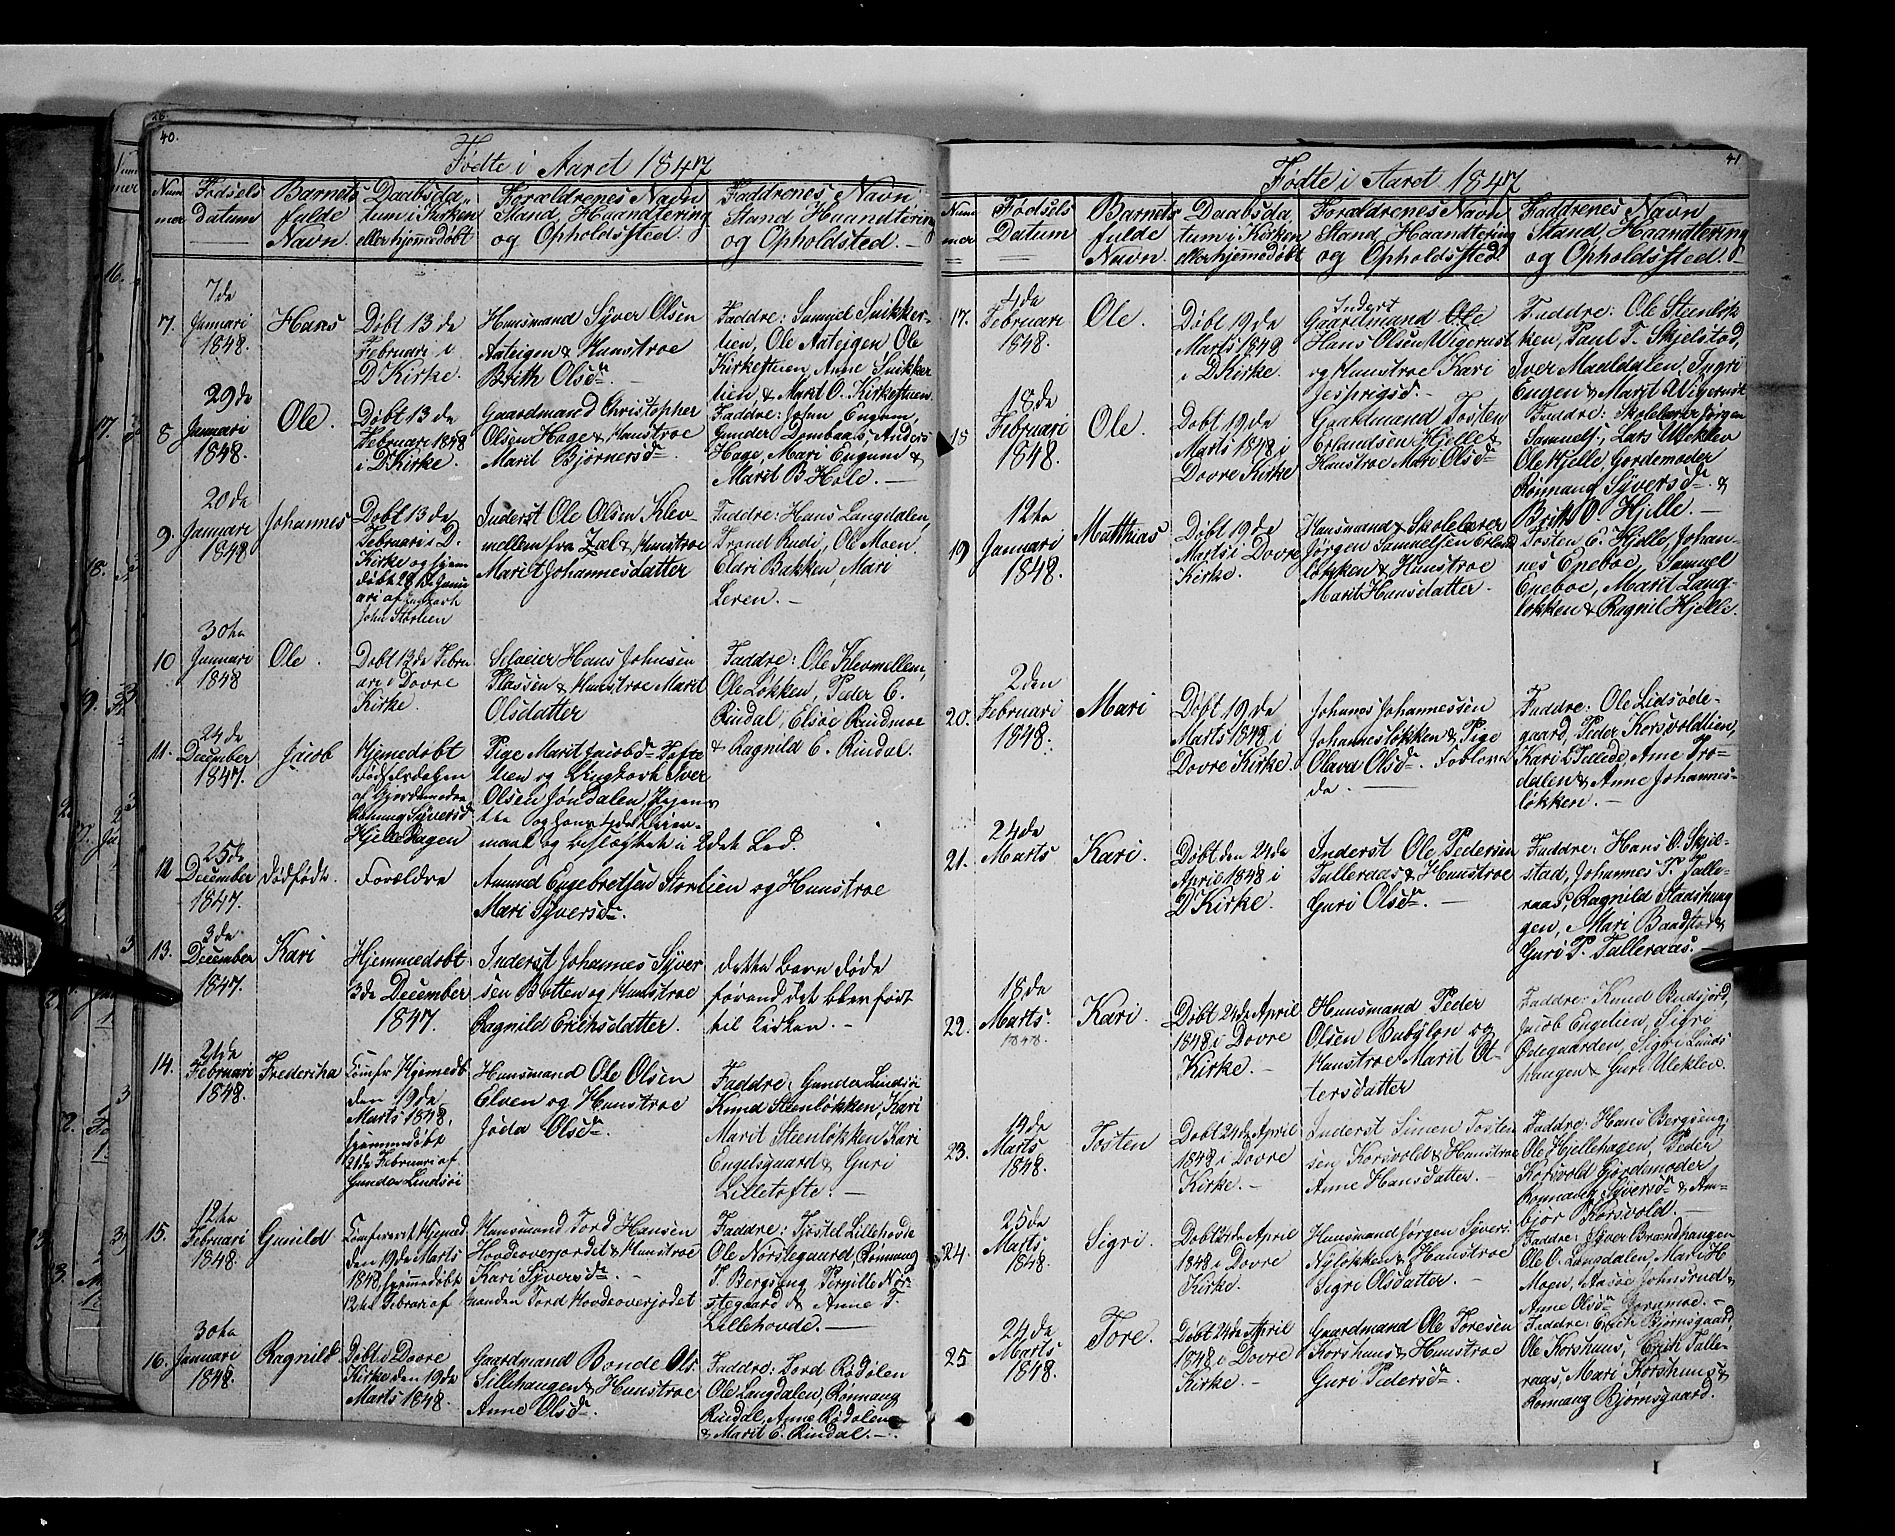 40.
Fødte i Aaret 1847
Num
mer
Fødsels
datum
Barnets
fulde
Navn.
Daabsda
tum i Kirken
eller hjemmedøbt
Forældrenes Navn
Stand, Haandtering
og Opholdssted.
Faddrenes Navn
Stand Haandtering
og Opholdsted. -
7.
7de
Januari
1848.
Hans
Døbt 13de
Februari i
D Kirke.
Huusmand Syver Olsen
Aateigen & Huustroe
Brith Olsdr
Faddre: Samuel Snikker-
lien, Ole Aateigen Ole
Kirkestuen, Anne Snikker
lien, & Marit O. Kirkestuen
8
29de
Januari
1848.
Ole.
Døbt 13de
Februari 1848
i D Kirke.
Gaardmand Christopher
Olsen Hage & Huustroe
Marit Bjørnersdr
Faddre: John Engum,
Gunder Dombaas, Anders
Hage, Mari Engum &
Marit B Hole. -
9.
20de
Januari
1848
Johannes
Døbt 13de
Februari i D.
Kirke og hjem
døbt 28de Janu
ari af
John Storlien
Inderst Ole Olsen Klev-
mellem fra Læl & Huustroe
Marit Johannesdatter
Faddre: Hans Langdalen,
Trond Rudi, Ole Moen
Eldri Bakken, Mari
Leren. -
10
30te
Januari
1848
Ole.
Døbt 13de Febru
ari i Dovre
Kirke.
Selveier Hans Johnsen
Plassen & Huustroe Marit
Olsdatter
Faddre: Ole Klevmellem,
Ole Løkken, Peder E.
Rindal, Elsoe Rindmoe
& Ragnild E. Rindal.
11.
24de
December
1847.
Jacob
Hjemedøbt
Fødselsdagen
af Gjordemoder
Rønnaug Syversd
Hjellehagen
Pige Marit Jacobsdr Tofte
lien og Ungkarl Iver
Olsen Jøndalen,
og hans 4de Leier-
maal og beslægtet i 2det Led.
12
25de
December
1847.
Dødfødt.
Forældre
Amund Engebretsen Storlien og Huustroe
Mari Syversdr.
13.
3de
December
1847.
Kari
Hjemmedøbt
3de December
1847.
Inderst Johannes Syver
sen Botten og Huustroe
Ragnild Erichsdatter.
dette Barn døde
førend det blev ført
til Kirken. -
14.
21de
Februari
1848.
Frederikka
Comfr Hjemedb
den 19de
Marts 1848,
hjemmedøbt
21de Februari af
Gunder Lindsøi
Huusmand Ole Olsen
Elven og Huustroe
Joda Olsdr
Faddre: Gunder Lindsøi
Knud Steenløkken, Kari
Marit Steenløkken Kari
Engelsgaard & Guri
Lilletofte. -
15.
12te
Februari
1848.
Gunild
Comfirmert Hjemed
den 19de Marts
1848, hjemmedøbt
12te Februari af
Huusmand Tord Hansen
Hovdeoverjordet & Huustroe
Kari Syversdr -
manden Tord Hovdeoverjodet
Faddre: Tjostel Lillehovde
Ole Nørstegaard, Rønnaug
T. Bergseng, Pernille Nør
stegaard & Anne T.
Lillehovde. -
16.
30te
Januari
1848.
Ragnild
Døbt i Dovre
Kirke den 19de
Marts 1848.
Gaardmand Bonde Ols
Lillehaugen & Huustroe
Anne Olsdr.
Faddre: Tord Rødølen
Ole Langdalen, Rønnaug
Rindal, Anne Rødølen
& Marit E. Rindal. -
41
Fødte i Aaret 1847
Num
mer
Fødsels
Datum
Barnets
fulde
Navn.
Daabsda
tum i Kirken
eller hjemedøbt
Forældrenes Navn
Stand Haandtering
og Opholdssted.
Faddrenes Navn
Stand Haandtering
og Opholdssted.
17.
4de
Februari
1848.
Ole.
Døbt 19de
Marts 1848
i D Kirke.
Inderst
Gaardmand Ole
Hans Olsen Vigerust
og Huustroe Kari
Jesprigsd. -
Faddre: Ole Steenløk
ken, Paul T. Skjelstad,
Iver Maaldalen, Ingri
Engen & Marit Vigerust
18
18de
Februari
1848.
Ole.
Døbt 19de
Marts 1848 i
Dovre Kirke
Gaardmand Tosten
Erlandsen Hjelle &
Huustroe Mari Olsdr
Faddre: Skolelærer Jørgen
Samuels, Lars Uleklev
Ole Hjelle, Gordemoder
Rønnaug Syversdr &
Brith O. Hjelle. -
19
12te
Januari
1848.
Matthias
Døbt 19de
Marts i Dovre
Kirke.
Huusmand & Skolelærer
Jørgen Samuelsen Erland
løkken & Huustroe
Marit Hansdatter.
Tosten E. Hjelle, Johan-
nes Eneboe, Samuel
Eneboe, Marit Lang-
løkken & Ragnil Hjelle.
20.
2den
Februari
1848.
Mari
Døbt 19de
Marts 1848 i
Dovre Kirke.
Johanes Johannesen
Johannesløkken & Pige
Olava Olsdr. Foblove
de. -
Faddre: Ole Lidsøde-
gaard, Peder Korsvoldlien,
Kari L Tillede, Ane Tro-
dalen & Anne Johannes-
løkken. -
21.
24de
Marts
Kari.
Døbt den 24de
April 1848 i
D Kirke.
Inderst Ole Pedersen
Talleraas & Huustroe
Guri Olsdr. -
Faddre: Hans O. Skjel-
stad, Johannes P. Talle-
raas, Ragnild Stadshaug
gen, Mari Baadstad &
Guri P. Talleraas.
22.
18de
Marts.
1848.
Kari.
Døbt 24de April
1848 i Dovre
Kirke. -
Huusmand Peder
Olsen Babylon og
Huustroe Marit Ol-
tersdatter
Faddre: Knud Budsjord,
Jacob Engelien, Sigri
Ødegaarden, Sigri Lunds
haugen & Guri Uleklev.
23.
14de
Marts
1848.
Tosten
Døbt 24de April
1848 i Dovre
Kirke. -
Inderst Simen Tosten
sen Korsvold & Huustroe
Anne Hansdatter. -
Faddre: Hans Bergseng,
Ole Hjellehagen, Peder
Korsvold Gjordemoder
Rønnaug Syversdr & Am-
bjør Korsvold. -
24.
25de
Marts
1848.
Sigri.
Døbt 24de April
1848 i Dovre
Kirke.
Huusmand Jørgen Syvers
Nyløkken & Huustroe
Sigri Olsdatter. -
Faddre: Syver Brandhaugen
Ole O. Langdalen, Mari H
Moen, Aasøe Johnsrud &
Anne Olsdr Jorumoe. -
25
24de
Marts
1848.
Tore.
Døbt 24de April
1848 i Dovre
Kirke. -
Gaardmand Ole Toresen
Korshuus & Huustroe
Guri Pedersdr.
Faddre: Erich Bjørnsgaard,
Ole Korshuus, Erich Talle-
raas, Mari Korshuus &
Rønnaug Bjørnsgaard.